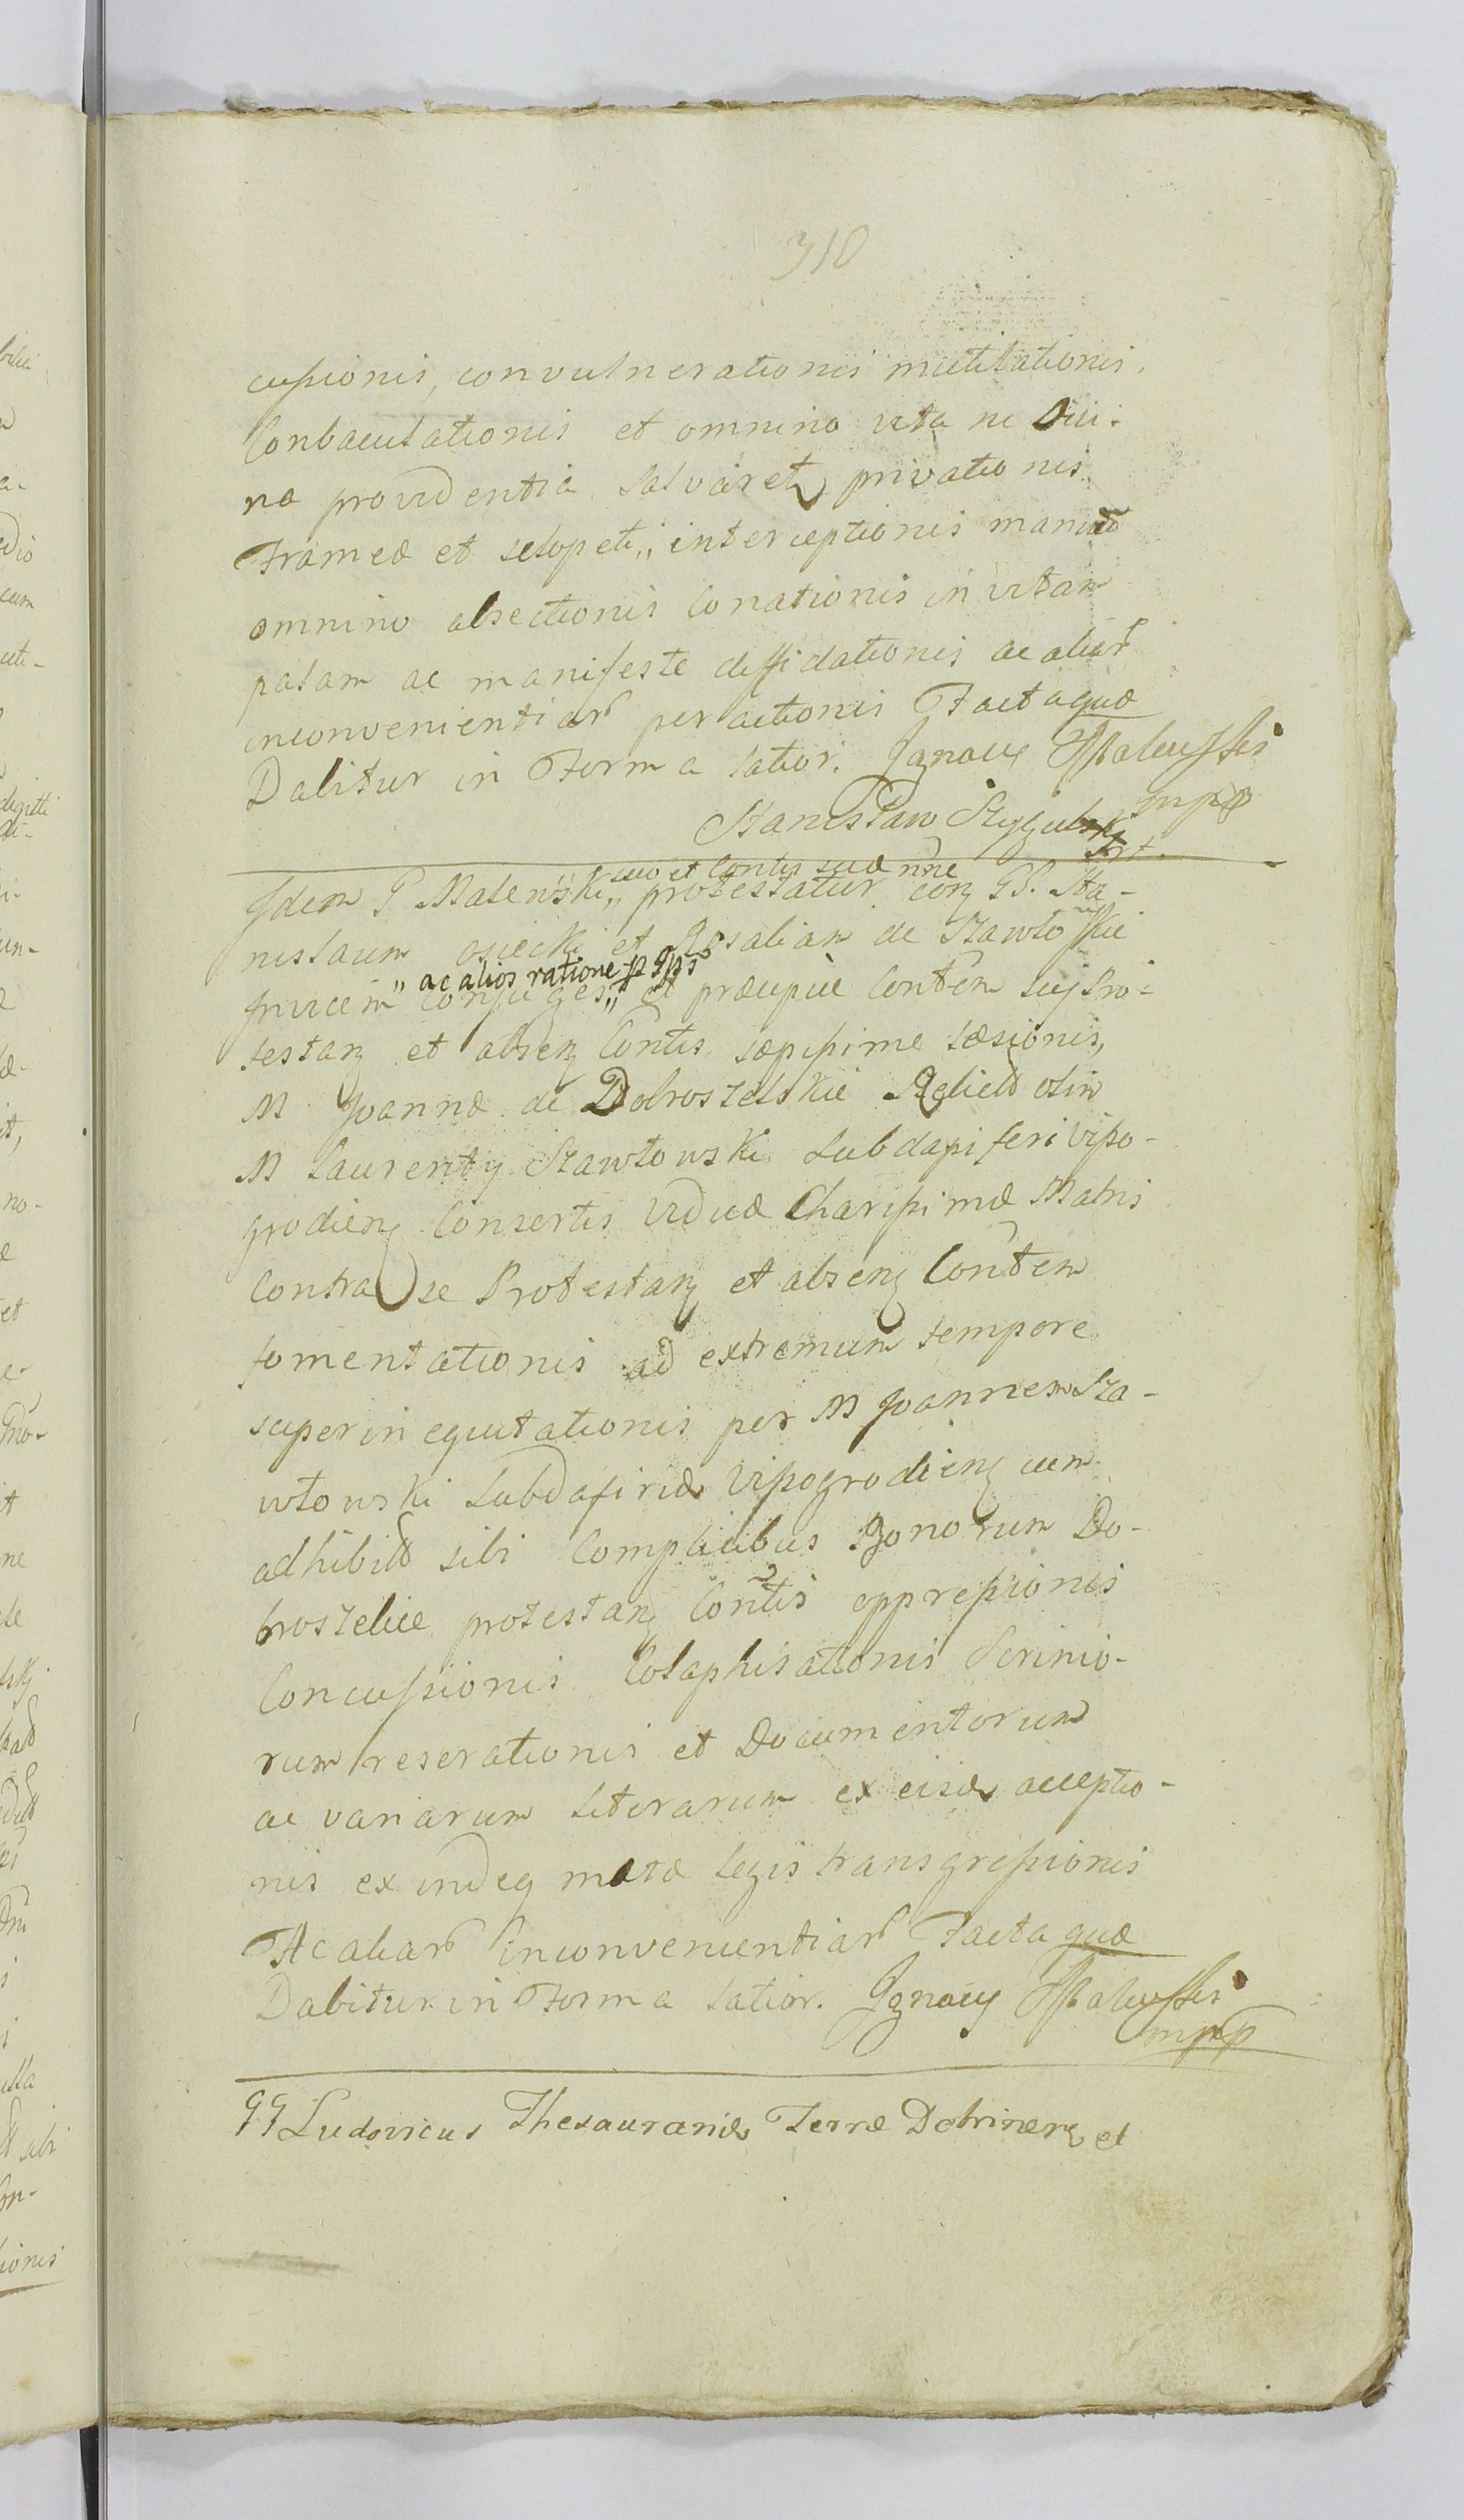 310
cussionis, convulnerationis mutilationis,
Conbaculationis et omnino vita ni Divi-
na providentia salvaret privationis
Frameæ et sclopeti „ interceptionis manuũ
omnino absectionis Conationis in vitam
palam ac manifeste diffidationis ac aliar̃
inconvenientiar̃ peractionis Facta quæ
Dabitur in Forma latior. Ignacy
mpp
Stanisław
suo et Contis suæ nñe
Idem G Malewski „ protestatur con GG. Sta-
nislaum Osiecki et Rosaliam de Szawłoskie
„ ac alios ratione
invicem Conjuges „ et præcipue Contem suj Pro-
testan et absen Contis sæpissime læsionis,
M Joannæ de Dobroszelskie Relictæ olim
M Laurentÿ Szawłowski Subdapiferi Visso-
grodien Consortis Viduæ Charissimæ Matris
Contra se Protestan et absen Contem
fomentationis ad extremum tempore
superinequitationis per M Joannem Sza-
włowski Subdapiridæ Vissogrodien cum
adhibitis sibi Complicibus Bonorum Do-
broszelice protestan Contis oppressionis
Concussionis Colaphisationis Scrinio-
rum reserationis et Documentorum
ac variarum literarum ex eisdē acceptio-
nis exindeq motæ legis transgressionis
Ac aliar̃ Inconvenientiar̃ Facta quæ
Dabitur in Forma latior. Ignacy
mpp
GG Ludovicus Thesauraridæ Terræ Dobrinen et